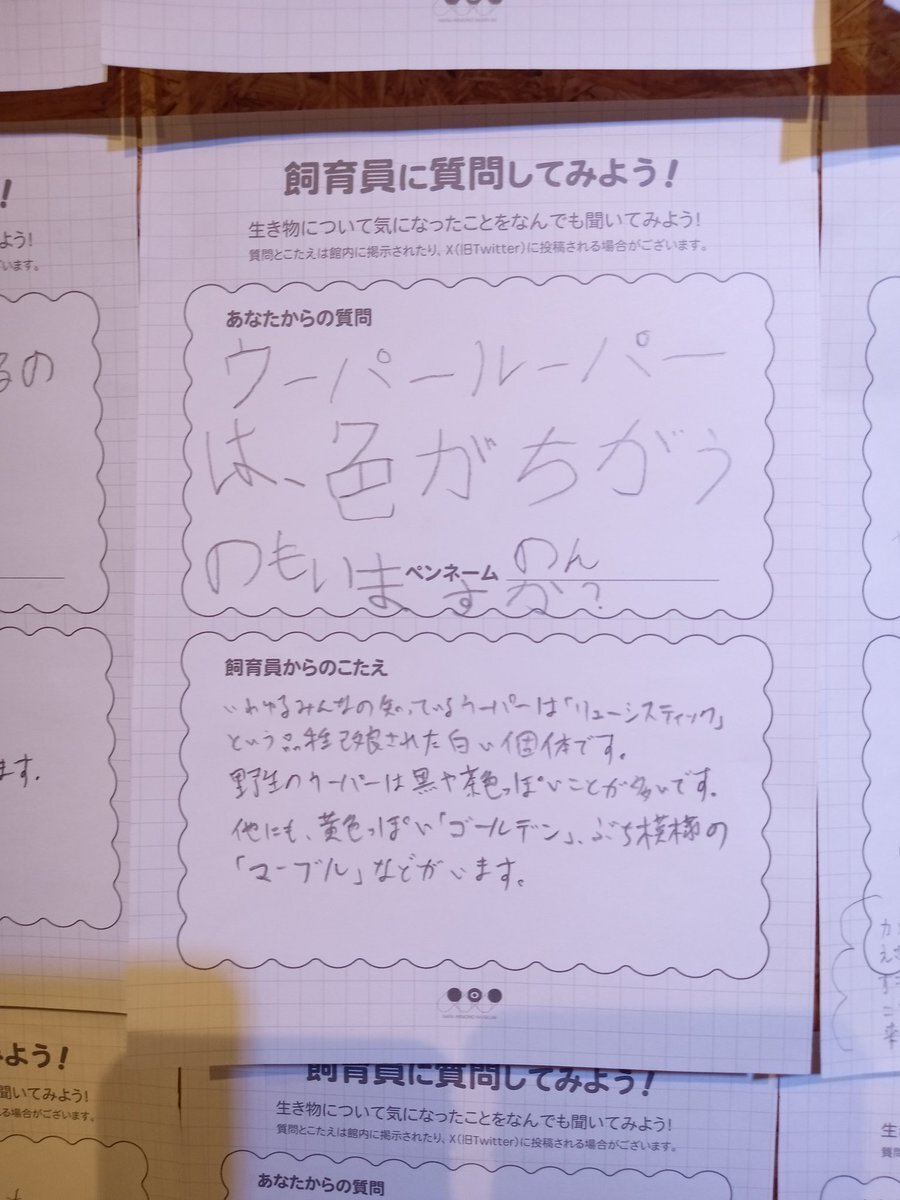 飼育員に質問してみよう!
生き物について気になったことをなんでも聞いてみよう!
質問とこたえは館内に掲示されたり、X(旧Twitter)に投稿される場合がございます。
あなたからの質問
ウーパールーパー
は、色がちがう
のもいますか?
ペンネーム のん
飼育員からのこたえ
いわゆるみんなの知っているウーパーは「リューシスティック」
という品種改良された白い個体です。
野生のウーパーは黒や茶色っぽいことが多いです。
他にも、黄色っぽい「ゴールデン」、ぶち模様の
「マーブル」などがいます。
!
よう!
います。
るの
ます.
みよう!
聞いてみよう!
れる場合がございます。
飼育員に質問してみよう!
生き物について気になったことをなんでも聞いてみよう!
質問とこたえは館内に掲示されたり、X(旧Twitter)に投稿される場合がございます。
あなたからの質問
生き
質問